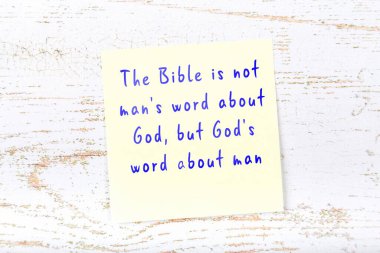 The Bible is not
man's word about
God, but God's
word about man